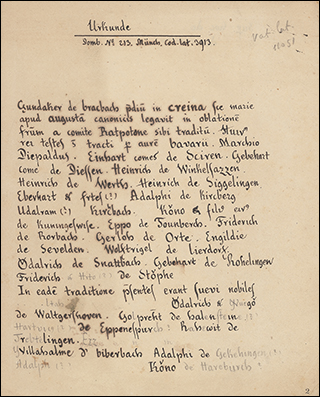 Urkunde
Domb. No 213. Münch. Cod. lat. 3913.
Gundaker de bracbach pdiū in creina sce marie
apud augustā canonicis legavit in oblationē
frūm a comite Ratpotone sibi traditū. Huiꝰ
rei testes s tracti p aurē bavarii. Marchio
Diepaldus. Einhart comes de Sciren. Gebehart
come de Diessen. Heinrich de Winkelsazzen.
Heinrich de Werth. Heinrich de Siggelingen
Eberhart & frtes (!) Adalphi de Kircberg
Udalram (!) Kircbach. Kōno & filꝰ eiꝰ
de Kuningeswise. Eppo de Tounberch. Friderich
de Rorbach. Gerloh de Orte. Engildie
de Sevelden. Wolftrigel de Lierdorf.
Ōdalrich de Snattbach. Gebehart de Rohelingen
Friderich & Hito (!) de Stōphe
In eadē traditione psentes erant suevi nobiles
Ōdalrich &
de Waltgershoven. Golprecht de halensteine
de Eppenespurch
Trevtelingen.
Villahalme d' biberbach Adalphi de
Adalphi Kōno de Hareburch
2